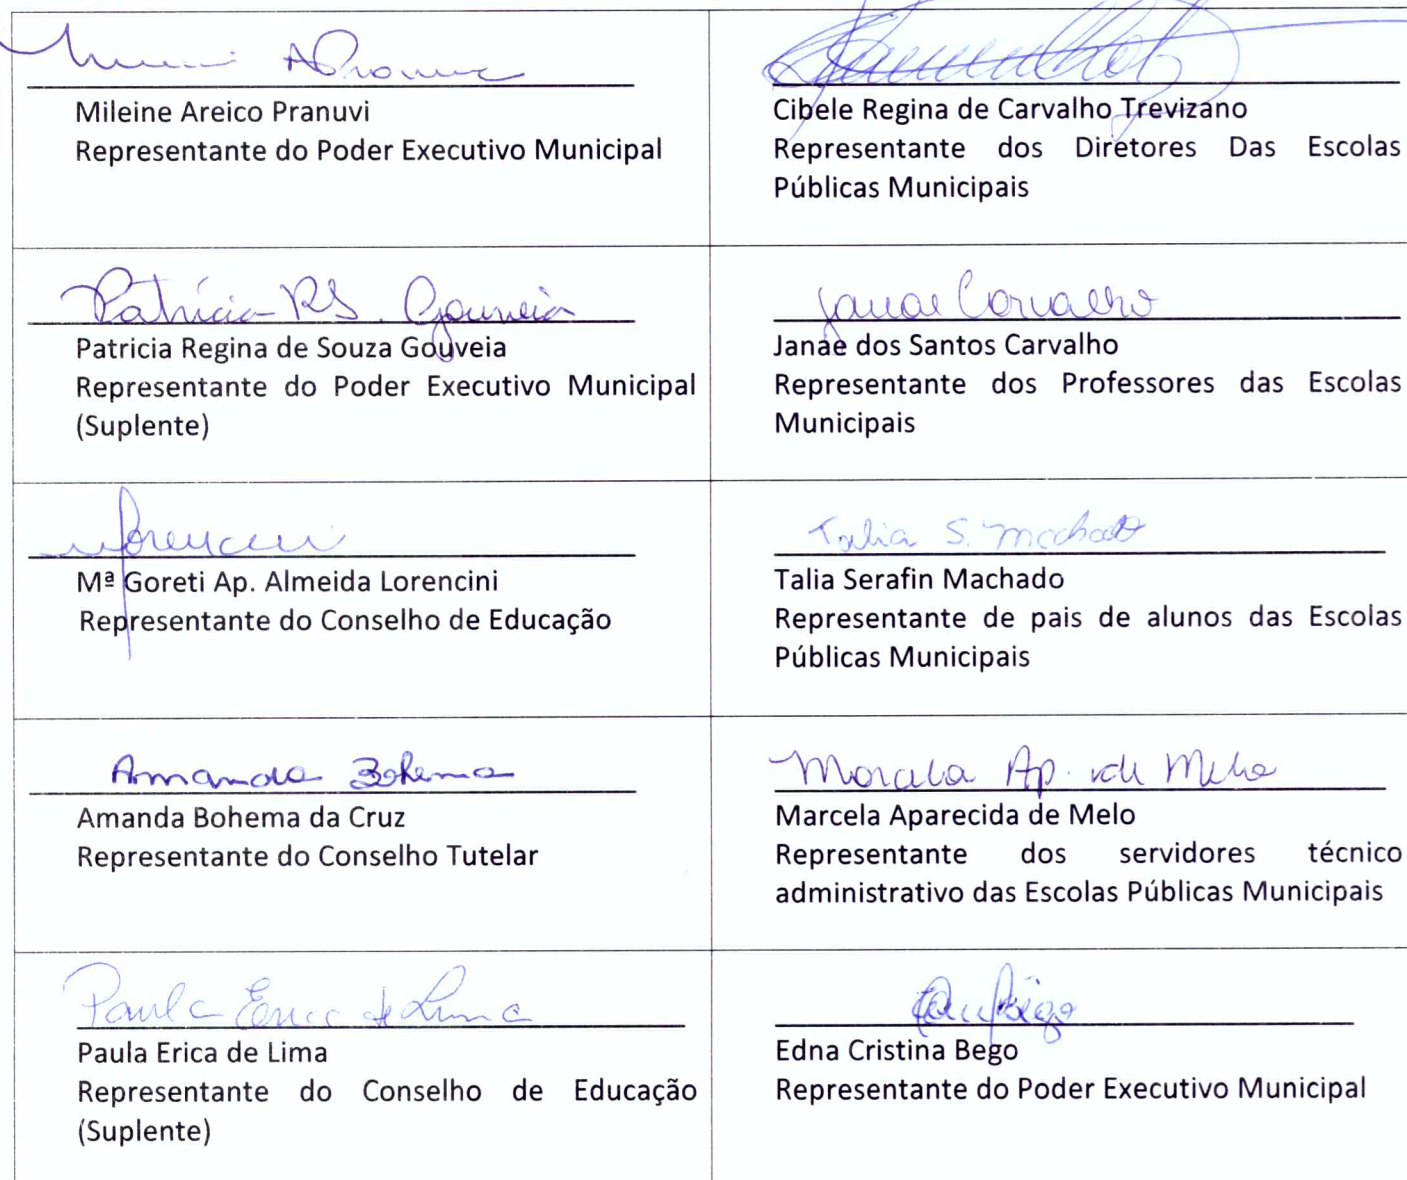 Mileine Areico Pranuvi
Representante do Poder Executivo Municipal
Cibele Regina de Carvalho Trevizano
Representante dos Diretores Das Escolas
Públicas Municipais
Patrícia RS. Gouveia
Patricia Regina de Souza Gouveia
Representante do Poder Executivo Municipal
(Suplente)
Janae Carvalho
Janae dos Santos Carvalho
Representante dos Professores das Escolas
Municipais
Mª Goreti Ap. Almeida Lorencini
Representante do Conselho de Educação
Talia S. Machado
Talia Serafin Machado
Representante de pais de alunos das Escolas
Públicas Municipais
Amanda Bohema
Amanda Bohema da Cruz
Representante do Conselho Tutelar
Marcela Ap. de Melo
Marcela Aparecida de Melo
Representante dos servidores técnico
administrativo das Escolas Públicas Municipais
Paula Erica de Lima
Paula Erica de Lima
Representante do Conselho de Educação
(Suplente)
Edna Cristina Bego
Representante do Poder Executivo Municipal